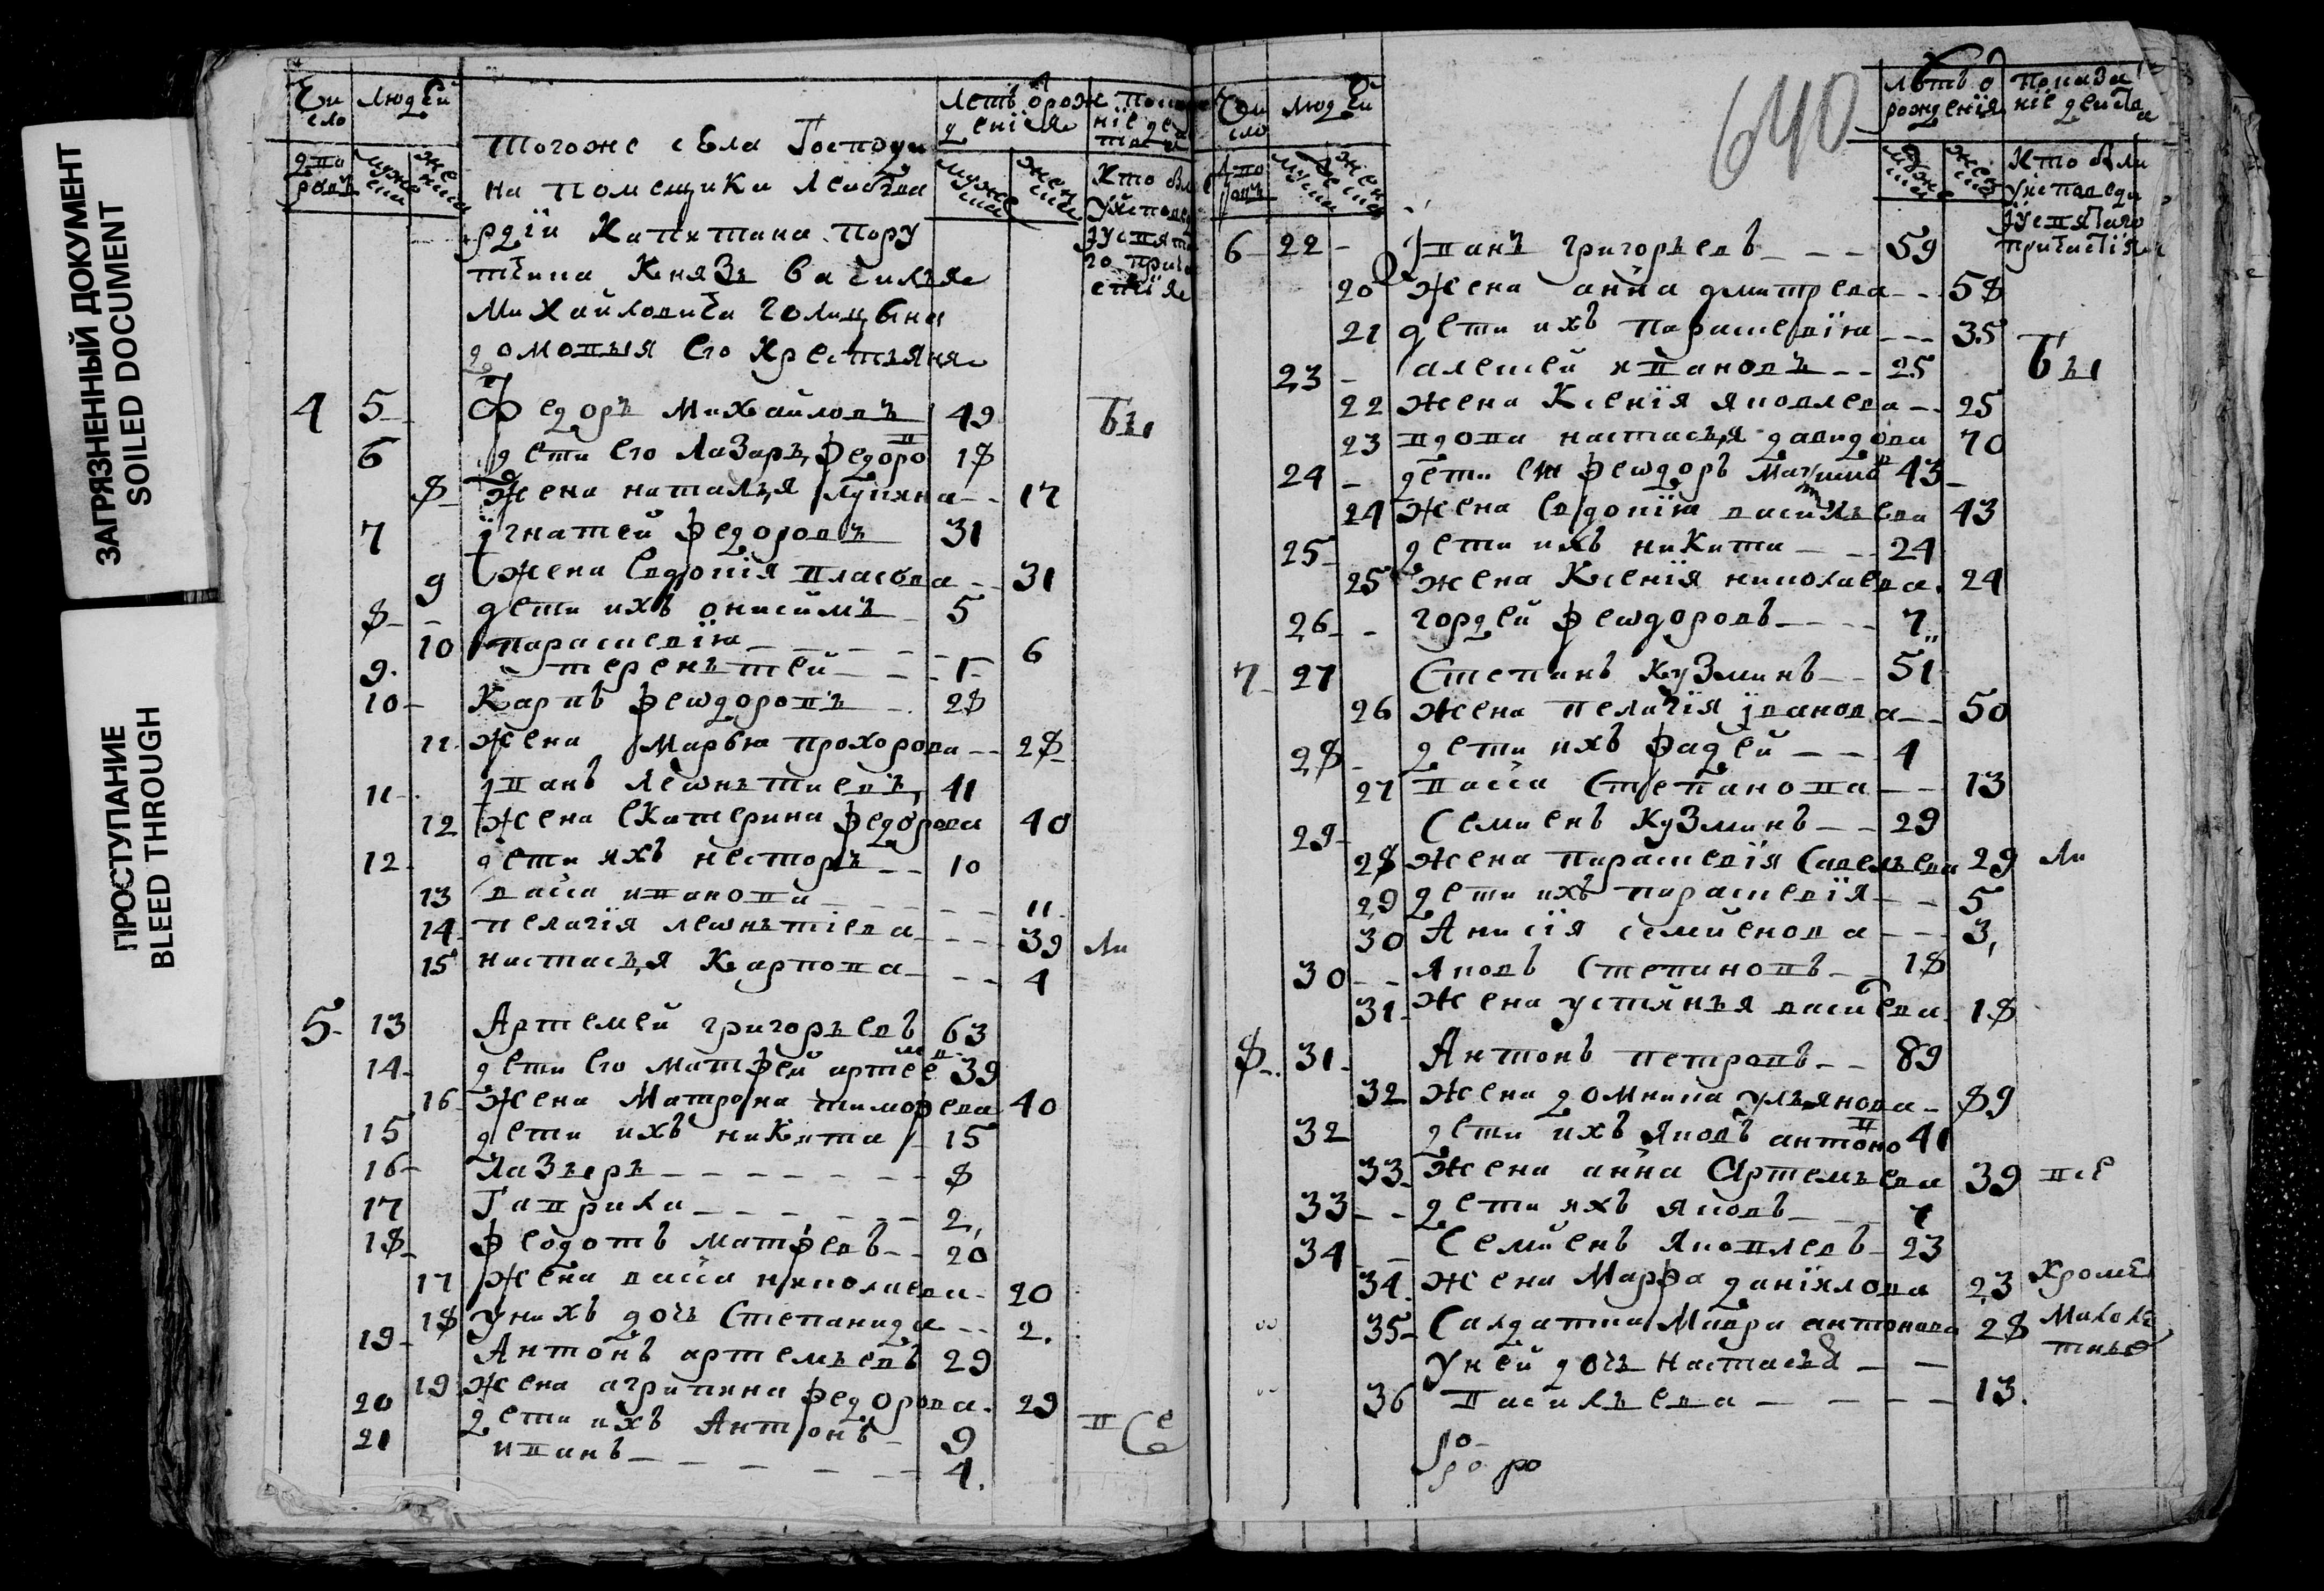 ЗАГРЯЗНЕННЫЙ ДОКУМЕНТ
SOILED DOCUMENT
ПРОСТУПАНИЕ
BLEED THROUGH
Чи сло людей
Летъ ѿ рож дения
дво ровъ муже ска жен ска
муже ска жен ска
Кто был
Тогоже села Господи
на помещика Лейбгва
рдiи Капитана пору
тчика Князь василья
Михайловича голицына
домовыя его крестьяня
4 5 Федоръ Михайловъ 49 бы
6 дети его Лазарь федоро в 18
8 Жена наталья лукина 17
7 iгнатей федоровъ 31
9 Жена евдокiя власова 31
8 дети ихъ онисимъ 5
10 параскевiя 6
9 терентей 1
10 Карпъ феѡдоровъ 28
11 Жена Марѳа прохорова 28
11 iванъ леѡнтиевъ 41
12 Жена екатерина федорова 40
12 дети ихъ несторъ 10
13 васса иванова 11
14 пелагiя леѡнтiева 39 ли
15 настасья Карпова 4
5 13 Артемей григорьевъ 63
14 дети его матфей артемее в 39
16 Жена Матрона тимофева 40
15 дети ихъ никита 15
16 Лазарь 8
17 Гаврила 2
18 федотъ матфевъ 20
17 Жена васса николаева 20
18 У нихъ дочь Степанида 2
19 Антонъ артемьевъ 29
19 Жена агрипина федорова 29
20 дети ихъ Антонъ 9 все
21 иванъ 4
640
Чи сло людей
летъ ѿ рождения показа нiе действа
дво ровъ муже ска жен ска
муже ска жен ска
Кто был
у исповеди
i у святаго
причастiя
6 22 iванъ григорьевъ 59
20 Жена анна дмитрева 58
21 дети ихъ параскевiя 35
23 алексей ивановъ 25 бы
22 Жена Ксенiя яковлева 25
23 вдова настасья давидова 70
24 дети ея феѡдоръ 43
24 Жена евдокiя васильева 43
25 дети ихъ никита 24
25 Жена Ксенiя николаева 24
26 гордей феѡдоровъ 7
7 27 Степанъ Кузминъ 51
26 Жена пелагiя iванова 50
28 дети ихъ фадей 4
27 васса Степанова 13
29 Семиенъ Кузминъ 29
28 Жена параскевiя Савельева 29 ли
29 дети ихъ параскевiя 5
30 Анисiя семиенова 3
30 Яковъ Степановъ 18
31 Жена устинья васиева 18
8 31 Антонъ петровъ 89
32 Жена домника ульянова 89
32 дети ихъ Яковъ антоно в 41
33 Жена анна Артемьева 39 все
33 дети ихъ Яковъ
34 Семиенъ Яковлевъ 23
34 Жена Марфа данiилова 23 Кроме
35 Салдатка Мавра антонова 28 Малоле
тныхъ
У ней дочь Настасья
36 Васильева 13